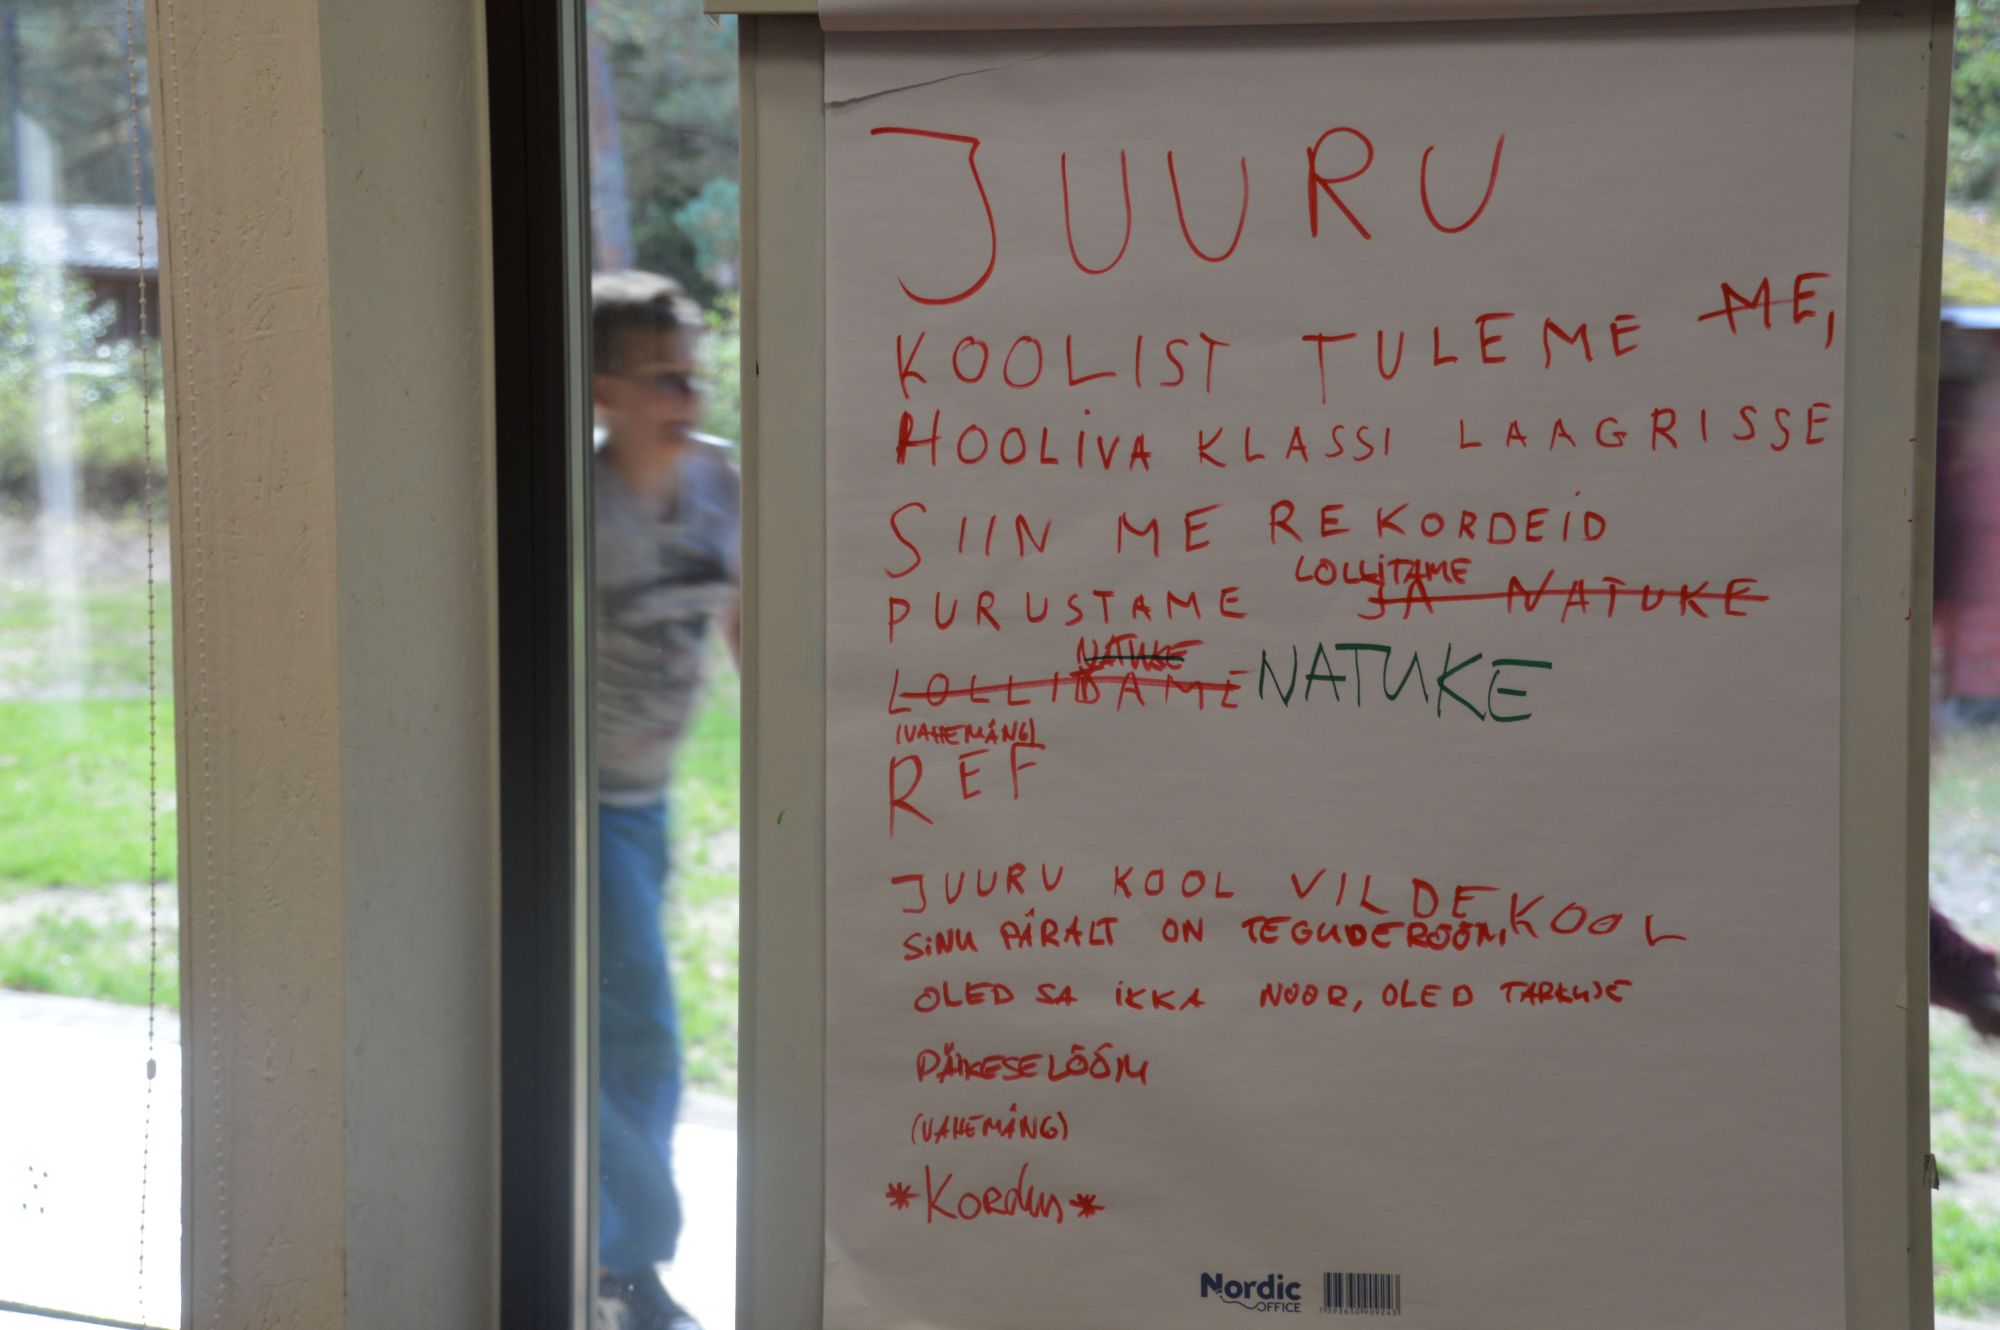 JUURU
KOOLIST TULEME ME,
HOOLIVA KLASSI LAAGRISSE
SIIN ME REKORDEID
LOLLITAME
PURUSTAME JA NATUKE
NATUKE
LOLLIDAME NATUKE
(VAHEMÄNG)
REF
JUURU KOOL VILDE KOOL
SINU PÄRALT ON TEGUDERÕÕM,
OLED SA IKKA NOOR, OLED TARKUSE
PÄIKESELÕÕM
(VAHEMÄNG)
*Kordus*
Nordic
OFFICE
7393630909243